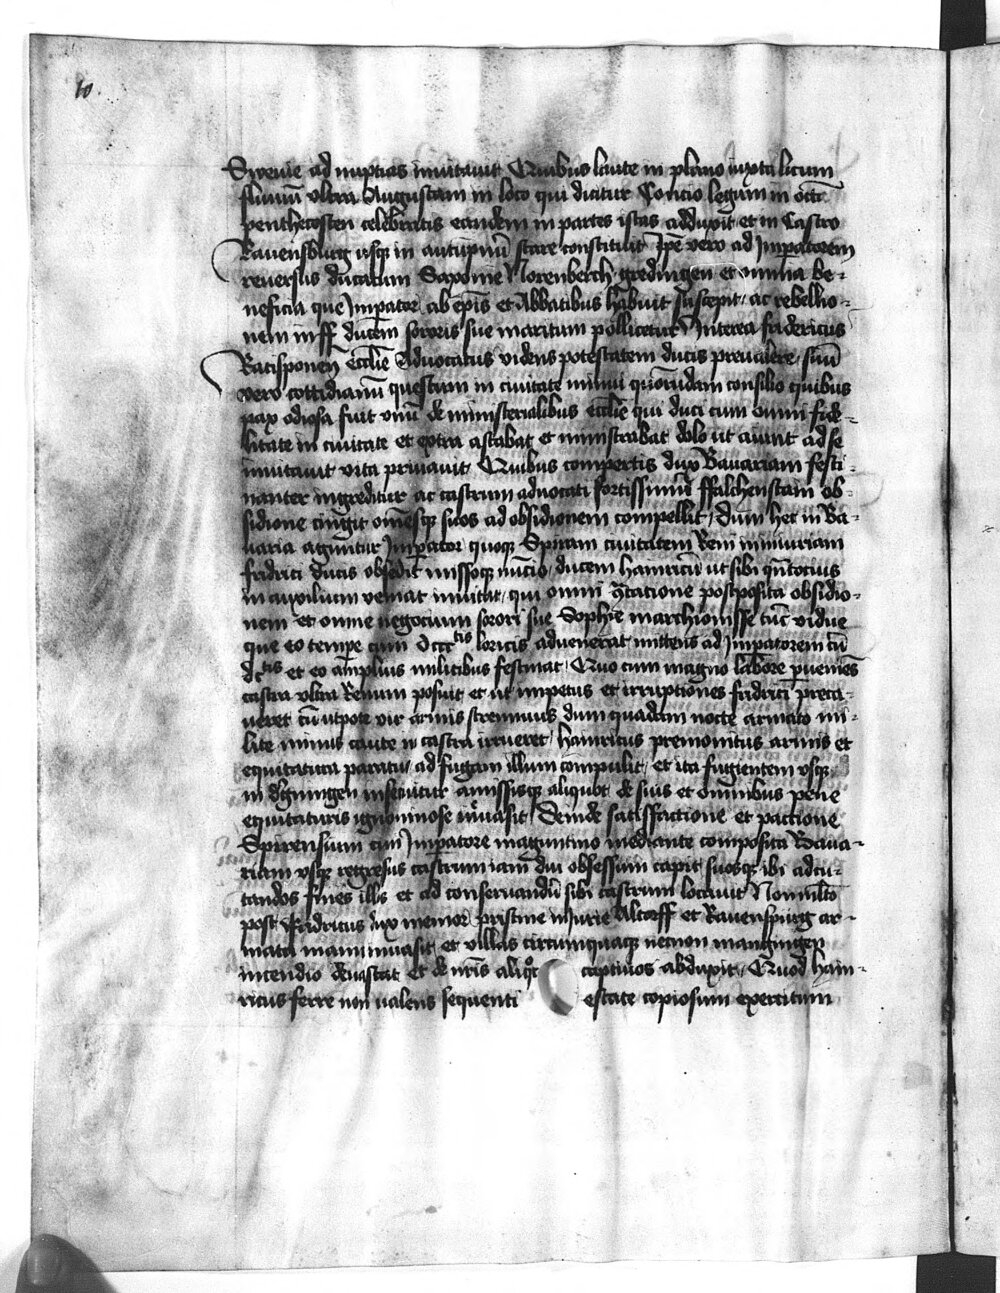 10.
Swevie ad nuptias invitavit Quibus laute in plano iuxta licum
fluviū vltra Augustam in loco qui dicitur Concio legum in octã
penthecosten celebratis eandem in partes istas adduxit et in Castro
Ravensburg vsqꝫ in autūpnū stare constituit Ipe vero ad Impatorem
reversus ducatum Saxonie Norenberch gredingen et omnia be-
neficia que Impator ab epis et Abbatibus habuit suscepit ac rebellio-
nem in ff ducem sororis sue maritum pollicetur Interea fridericus
Ratisponeñ Ecclie Advocatus videns potestatem ducis prevalere suū
vero cottidianū questum in civitate minui quorundam consilio quibus
pax odiosa fuit vnū de ministerialibus ecclie qui duci cum omni fide-
litate in civitate et extra astabat et ministrabat dolo ut aiunt ad se
invitavit vita privavit Quibus compertis dux Bavariam festi-
nanter ingreditur ac castrum advocati fortissimū ffalchenstain ob-
sidione cingit omēsqꝫ suos ad obsidionem compellit / Dum hec in Ba-
varia aguntur Impator quoqꝫ Spiram civitatem Reni in iniuriam
fridrici ducis obsedit missoqꝫ nūcio ducem hainricū ut sibi qñtocius
in auxilium veniat invitat / qui omni occatione postposita obsidio-
nem et omne negocium sorori sue Sophie marchionisse tūc vidue
que eo tempe cum Dccc tis loricis advenerat mittens ad Impatorem cū
dc tis et eo amplius militibus festinat / Quo cum magno labore pveniēs
castra vltra Renum posuit et ut impetus et irruptiones fridrici preca-
veret cū utpote vir armis strennuus dum quadam nocte armato mi-
lite minus caute in castra irrueret / hainricus premonitus armis et
equitatura paratu / ad fugam illum compulit / et ita fugientem vsqꝫ
in Gruningen insequitur amissisqꝫ aliquot de suis et omnibus pene
equitaturis ignominiose evasit / Deinde satisffactione et pactione
Spirensium cum Impatore maguntino mediante composita Bava-
riam vsqꝫ regresus castrum iam diu obsessum capit suosqꝫ ibi ad cu-
tandos fines illis et ad conservandū sibi castrum locavit Nonmlto
post ffridricus dux memor pristine iniurie Altorff et Ravenspurg ar-
mata manu invasit et villas circumquaqꝫ necnon mangingen
incendio devastat et de nris aliqot captivos abduxit / Quod hain-
ricus ferre non valens sequenti estate copiosum exercitum